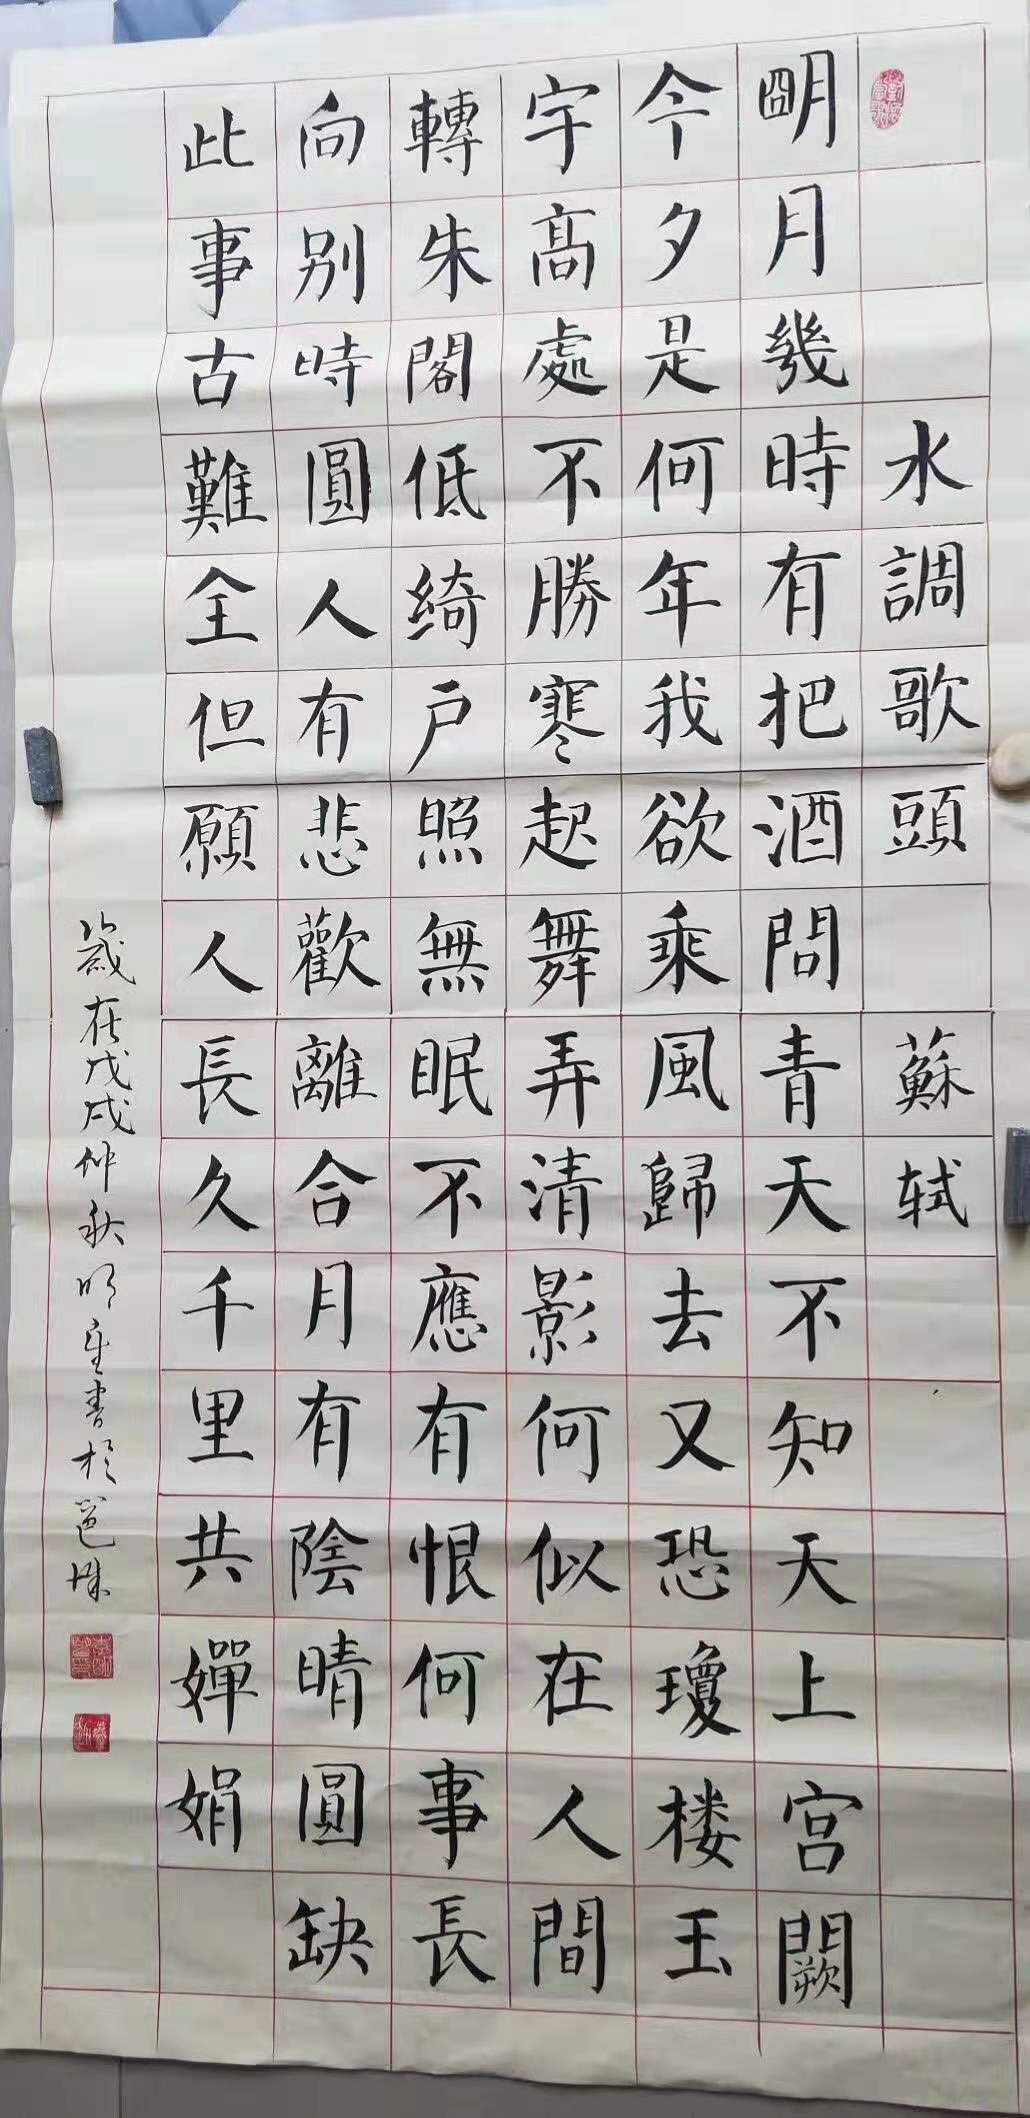 水調歌頭 蘇轼
明月幾時有把酒問青天不知天上宫闕
今夕是何年我欲乘風歸去又恐瓊楼玉
宇高處不勝寒起舞弄清影何似在人間
轉朱閣低绮户照無眠不應有恨何事長
向别時圓人有悲歡離合月有陰晴圓缺
此事古難全但願人長久千里共嬋娟
歲在戊戌仲秋明星書於邕城